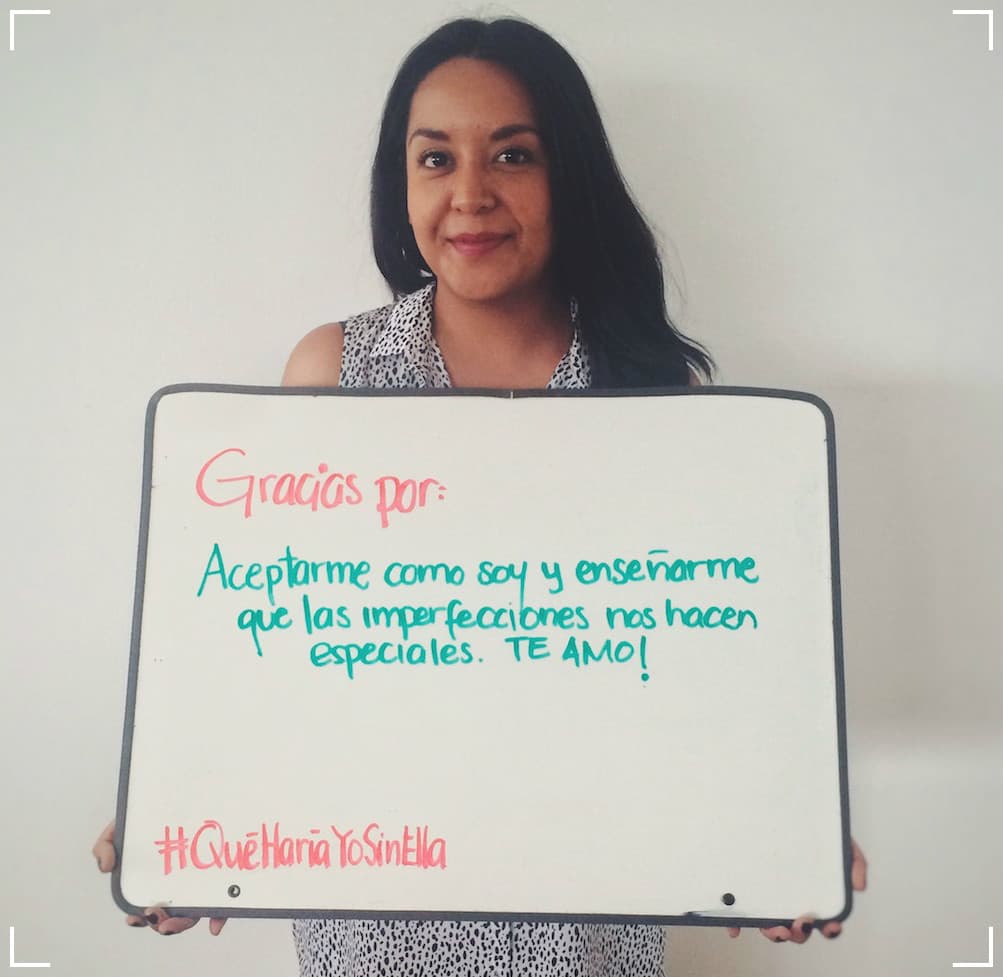 Gracias por:
Aceptarme como soy y enseñarme
que las imperfecciones nos hacen
especiales. TE AMO!
#QuéHaríaYoSinElla